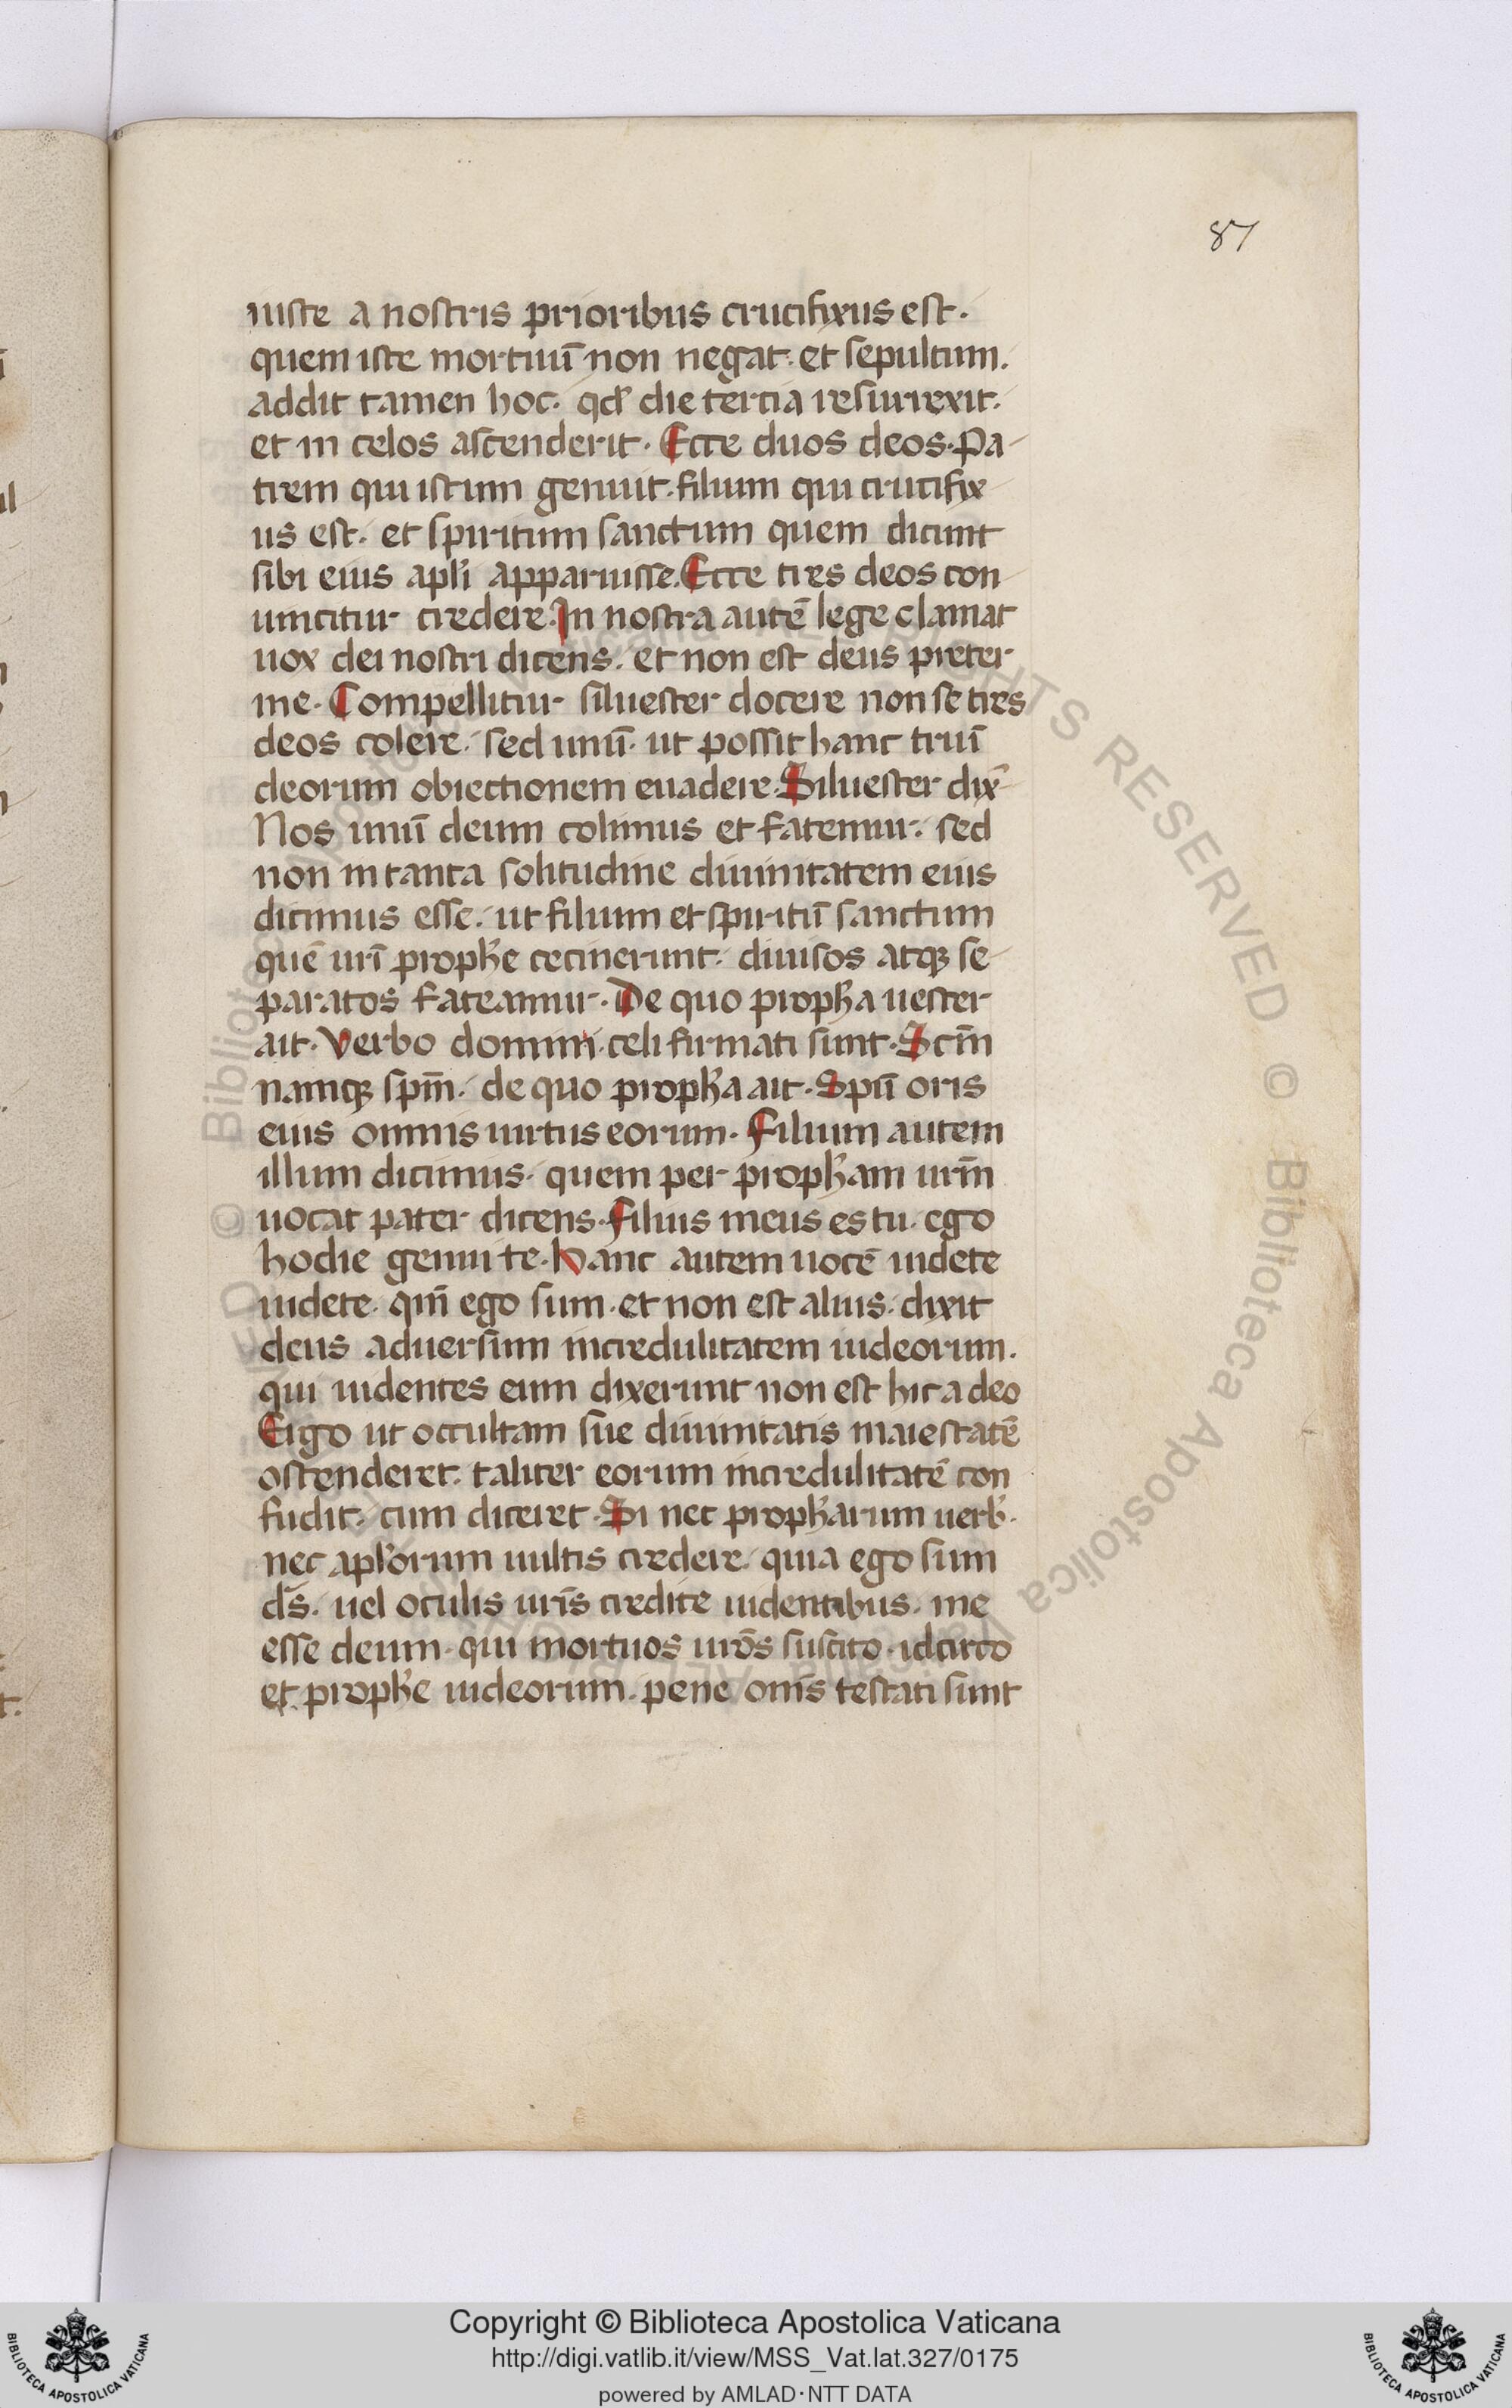 87
iuste a nostris prioribus crucifixus est.
quem iste mortuū non negat. et sepultum.
addit tamen hoc. qd̓ die tercia resurrexit.
et in celos ascenderit. Ecce duos deos. Pa-
trem qui istum genuit. filium qui crucifix-
us est. et spiritum sanctum quem dicunt
sibi eius apl̓i apparuisse. Ecce tres deos con-
uincitur credere. In nostra autē lege clamat
uox dei nostri dicens. et non est deus preter
me. Compellitur siluester docere non se tres
deos colere. sed unū. ut possit hanc triū
deorum obiectionem euadere. Siluester dix̄
Nos unū deum colimus et fatemur. sed
non in tanta solitudine diuinitatem eius
dicimus esse. ut filium et spiritū sanctum
quē ur̄i proph̓e cecinerunt. diuisos atqꝫ se-
paratos fateamur. De quo proph̓a uester
ait. Verbo domini. celi firmati sunt. Scm̄
namqꝫ spm̄. de quo proph̓a ait. Spū oris
eius omnis uirtus eorum. Filium autem
illum dicimus. quem per proph̓am ur̄m
uocat pater dicens. filius meus es tu. ego
hodie genui te. Hanc autem uocē uidete
uidete. qm̄ ego sum. et non est alius. dixit
deus aduersum incredulitatem iudeorum.
qui uidentes eum dixerunt non est hic a deo
Ergo ut occultam sue diuinitatis maiestatē
ostenderet. taliter eorum incredulitatē con
fudit. cum diceret. Si nec proph̓arum uerb̓.
nec apl̓orum uultis credere. quia ego sum
d̄s. uel oculis ur̄is credite uidentibus. me
esse deum. qui mortuos ur̄os suscito. idcirco
et proph̓e iudeorum. pene om̄s testati sunt
Copyright © Biblioteca Apostolica Vaticana
http://digi.vatlib.it/view/MSS_Vat.lat.327/0175
powered by AMLAD·NTT DATA